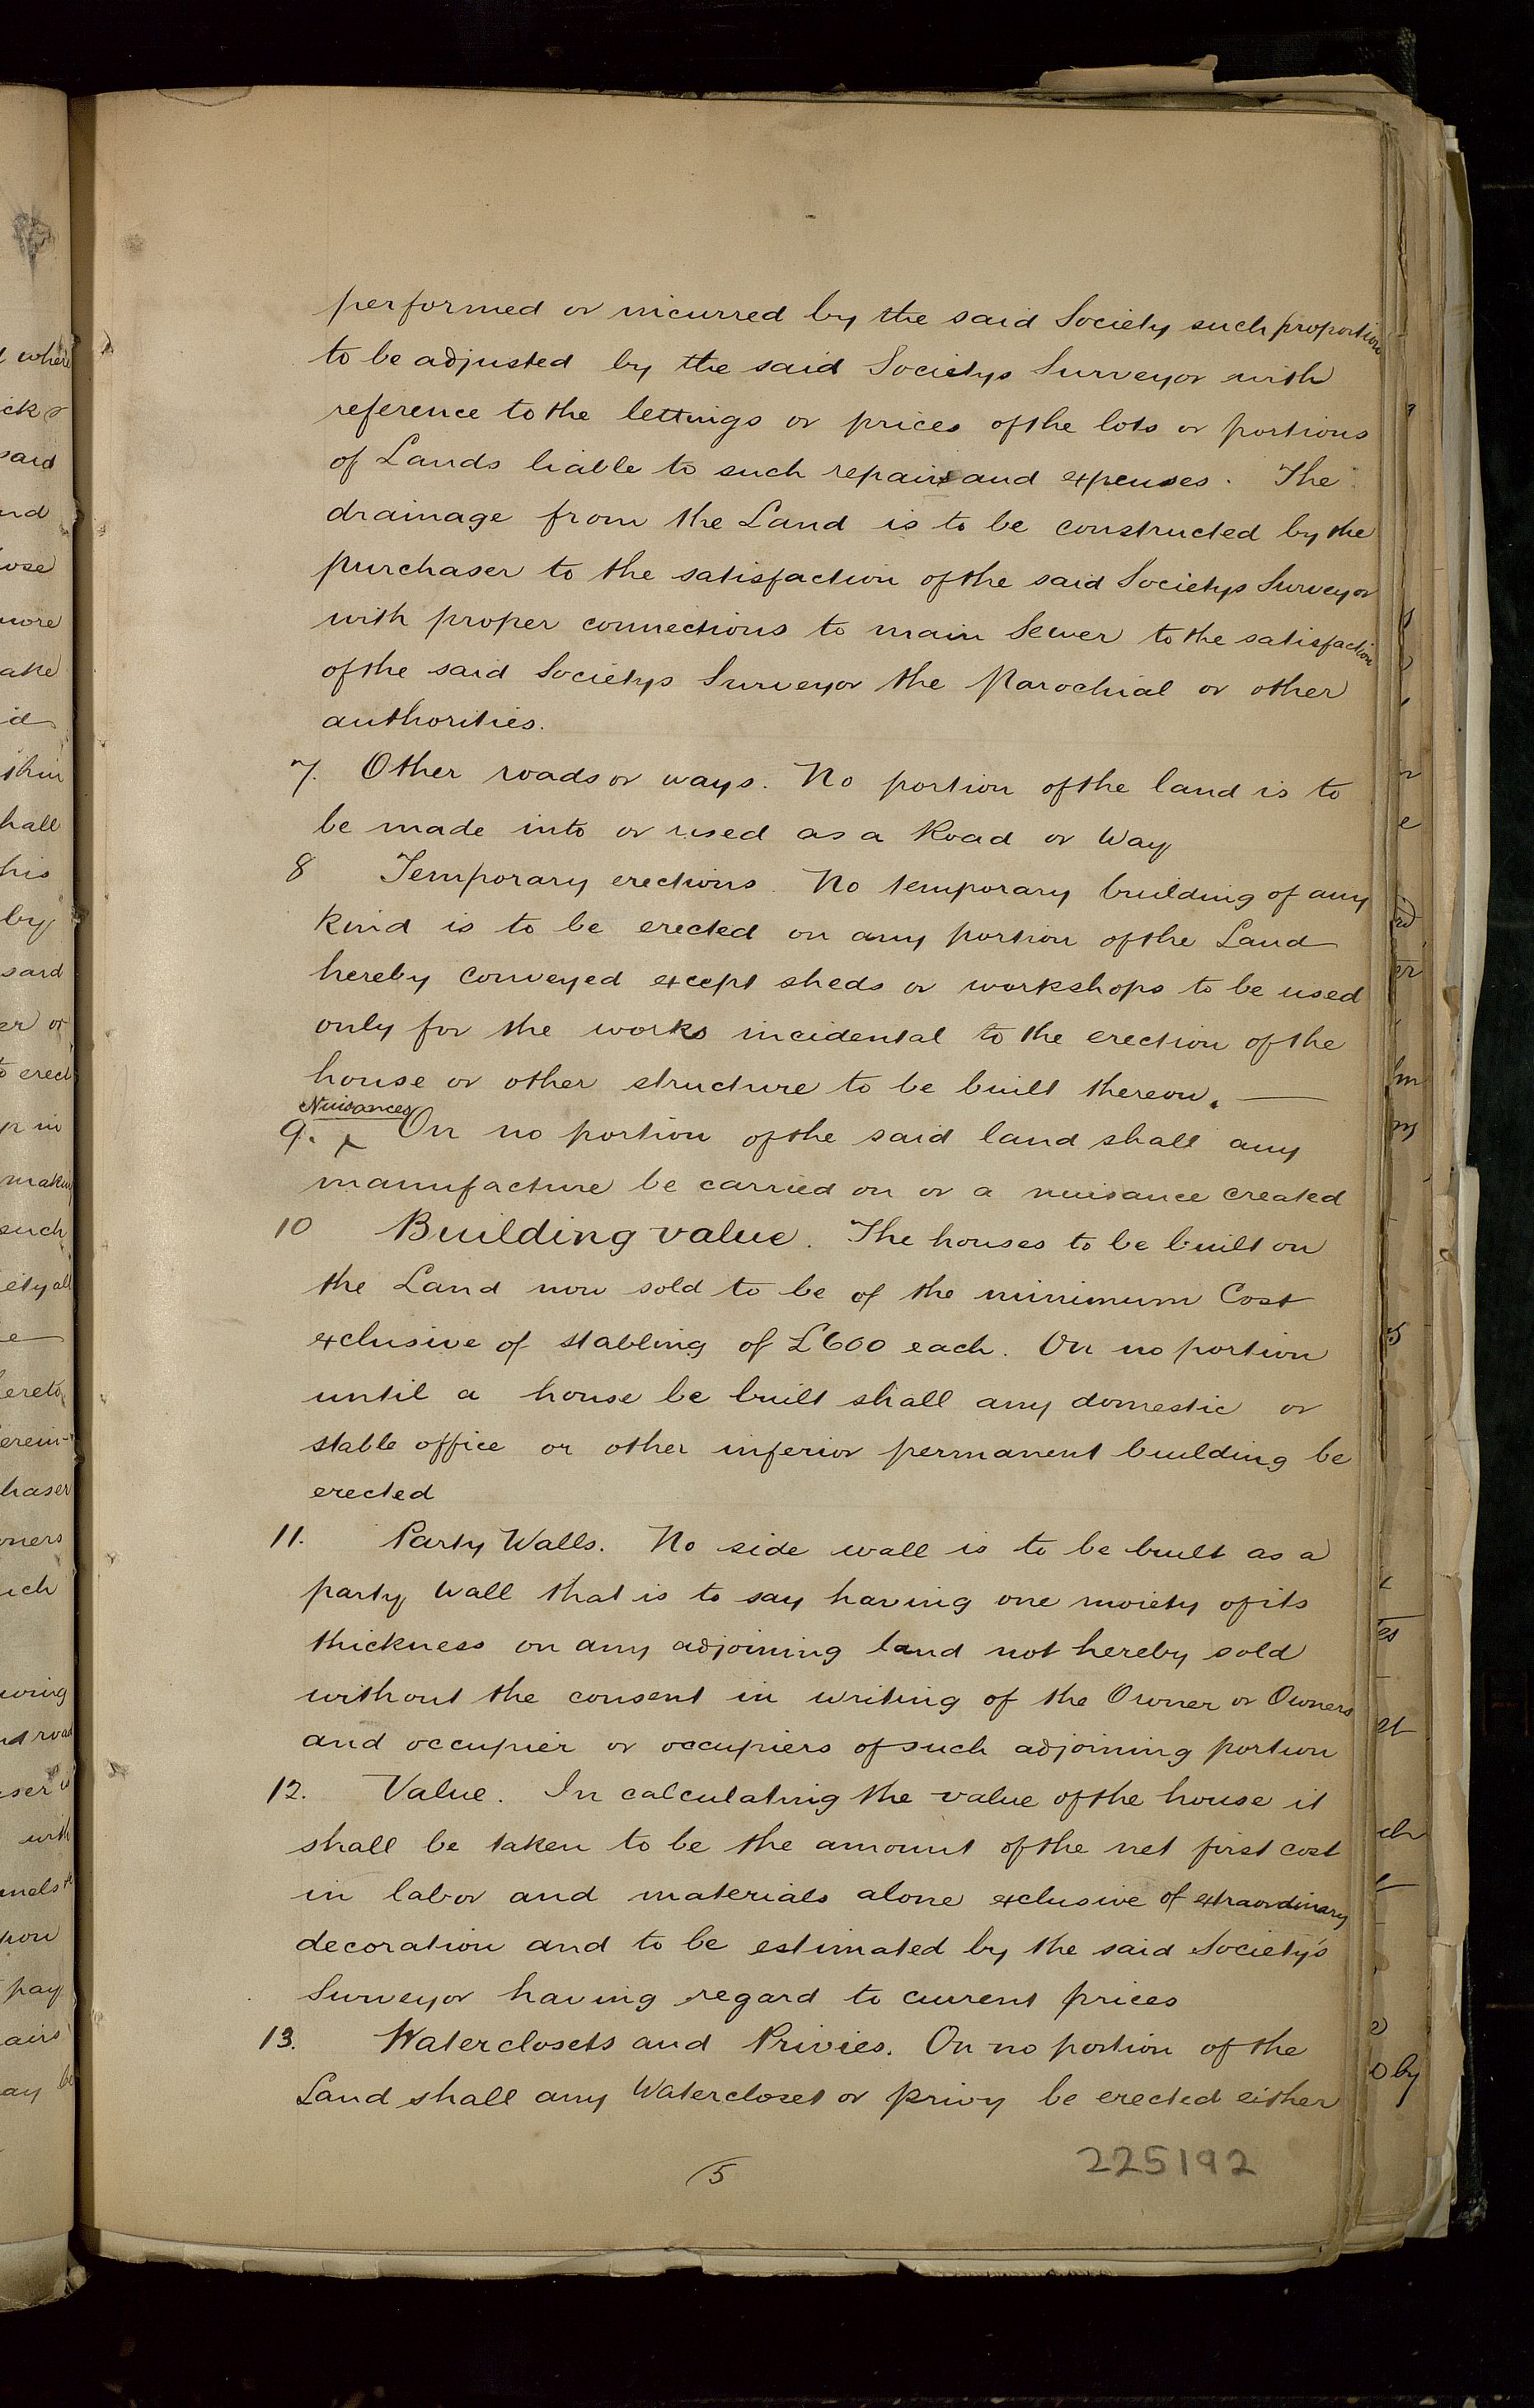 performed or incurred by the said Society such proportion
to be adjusted by the said Societys Surveyor with
reference to the lettings or prices of the lots or portions
of Lands liable to such repairs and expenses. The
drainage from the Land is to be constructed by the
purchaser to the satisfaction of the said Societys Surveyor
with proper connections to main Sewer to the satisfaction
of the said Societys Surveyor the Parochial or other
authorities.
7. Other roads or ways. No portion of the land is to
be made into or used as a Road or Way
8 Temporary erections. No temporary building of any
kind is to be erected on any portion of the Land
hereby conveyed except sheds or workshops to be used
only for the works incidental to the erection of the
house or other structure to be built thereon.
Nuisances
9. On no portion of the said land shall any
manufacture be carried on or a nuisance created
10 Building value. The houses to be built on
the Land now sold to be of the minimum Cost
exclusive of stabling of £600 each. On no portion
until a house be built shall any domestic or
stable office or other inferior permanent building be
erected
11. Party Walls. No side wall is to be built as a
party Wall that is to say having one moiety of its
thickness on any adjoining land not hereby sold
without the consent in writing of the Owner or Owners
and occupier or occupiers of such adjoining portion
12. Value. In calculating the value of the house it
shall be taken to be the amount of the net first cost
in labor and materials alone exclusive of extraordinary
decoration and to be estimated by the said Society's
Surveyor having regard to current prices
13. Waterclosets and Privies. On no portion of the
Land shall any Watercloset or privy be erected either
5
225192